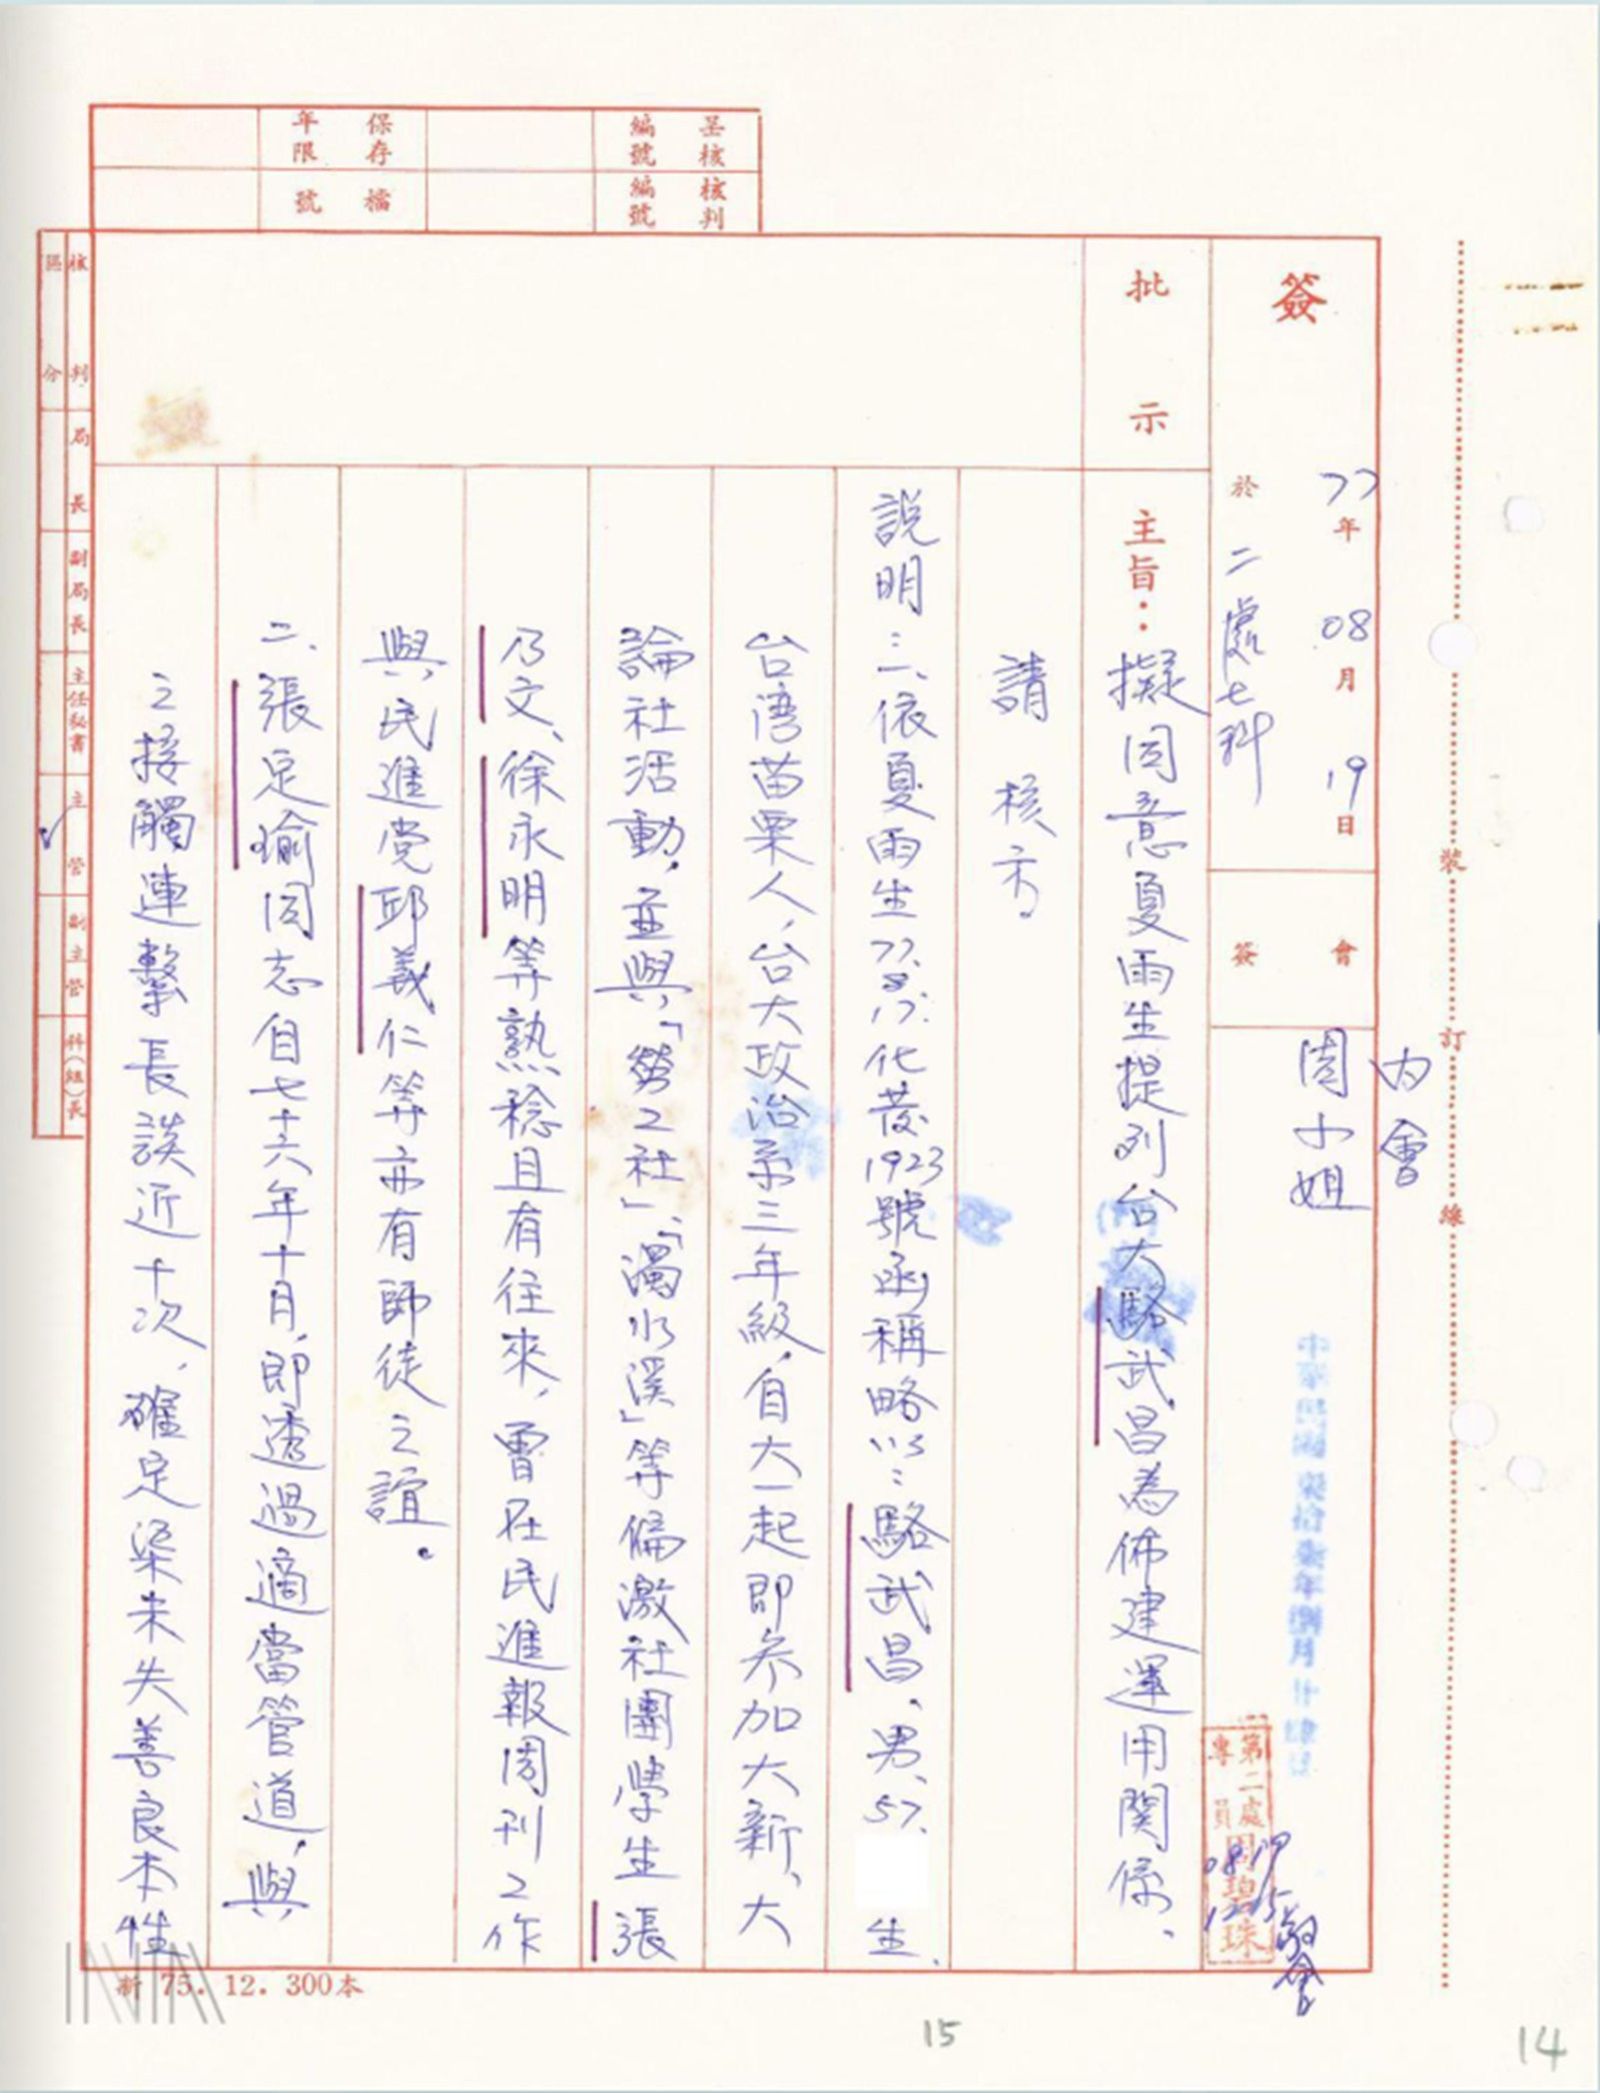 呈核編號
核判編號
保存年限
檔號
簽
77年08月19日
於二處七科
會簽
內會
周小姐
中華民國柒拾柒年捌月廿肆日
第二處
專員
周碧珠
08/19
1215
敬會
批示
主旨：擬同意夏雨生提列台大駱武昌為佈建運用関係、
請核示。
說明：一、依夏雨生77.8.17.化發1923號函稱略以：駱武昌、男、57.生、
台湾苗栗人、台大政治系三年級、自大一起即参加大新、大
論社活動，並與「勞工社」、「濁水溪」等偏激社團學生張
乃文、徐永明等熟稔且有往來，曾在民進報周刊工作
與民進党邱義仁等亦有師徒之誼。
二、張足瑜同志自七十六年十月，即透過適當管道，與
之接觸連繫長談近十次，確定渠未失善良本性
核判區分
局長
副局長
主任秘書
主管
副主管
科(組)長
裝訂線
新 75. 12. 300本
15
14